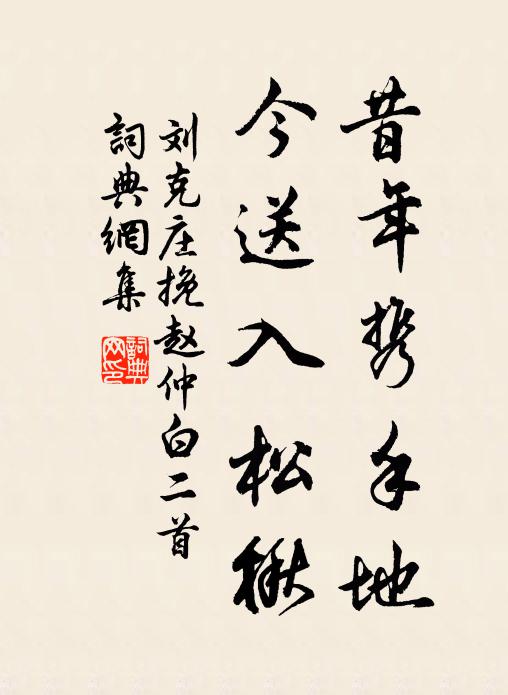 昔年携手地
今送入松楸
刘克庄挽赵仲白二首
詞典網集
詞典网印